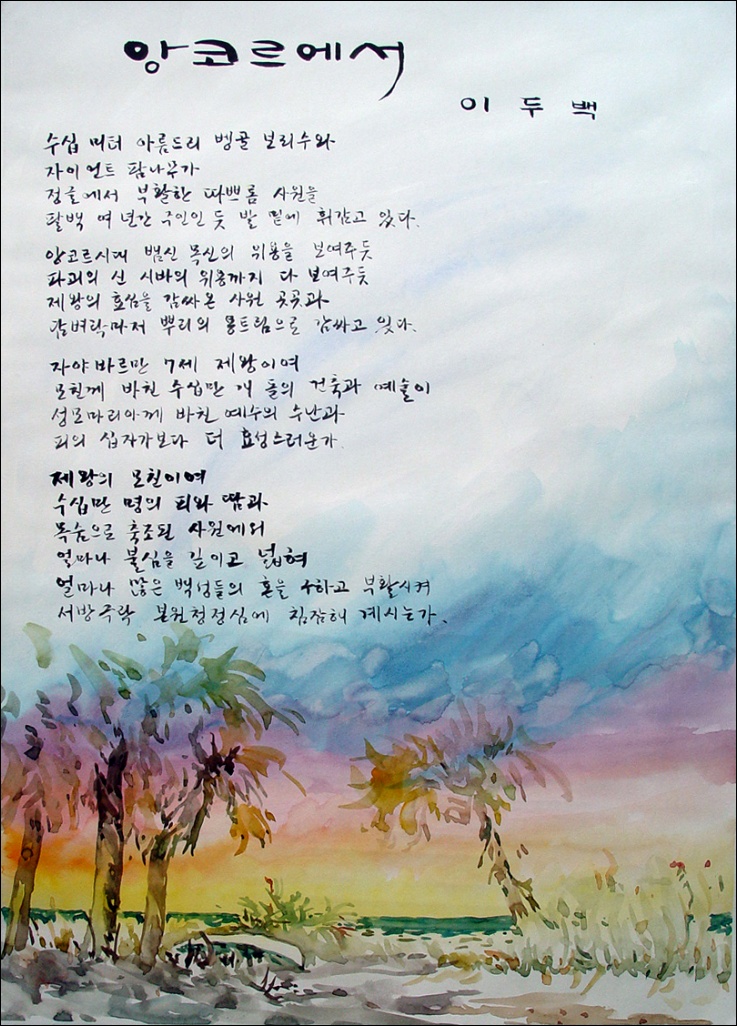 앙코르에서
이 두 백
수십 미터 아름드리 벵골 보리수와
자이언트 팜나무가
정글에서 부활한 따쁘롬 사원을
팔백 여 년간 주인인 듯 발 밑에 휘감고 있다.
앙코르시대 뱀신 목신의 위용을 보여주듯
파괴의 신 시바의 위용까지 다 보여주듯
제왕의 효심을 감싸온 사원 곳곳과
담벼락마저 뿌리의 몽트림으로 감싸고 있다.
자야바르만 7세 제왕이여
모친께 바친 수십만 개 돌의 건축과 예술이
성모마리아께 바친 예수의 수난과
피의 십자가보다 더 효성스러운가.
제왕의 모친이여
수십만 명의 피와 땀과
목숨으로 축조된 사원에서
얼마나 불심을 깊이고 넓혀
얼마나 많은 백성들의 혼을 구하고 부활시켜
서방극락 본원청정심에 침잠해 계시는가.